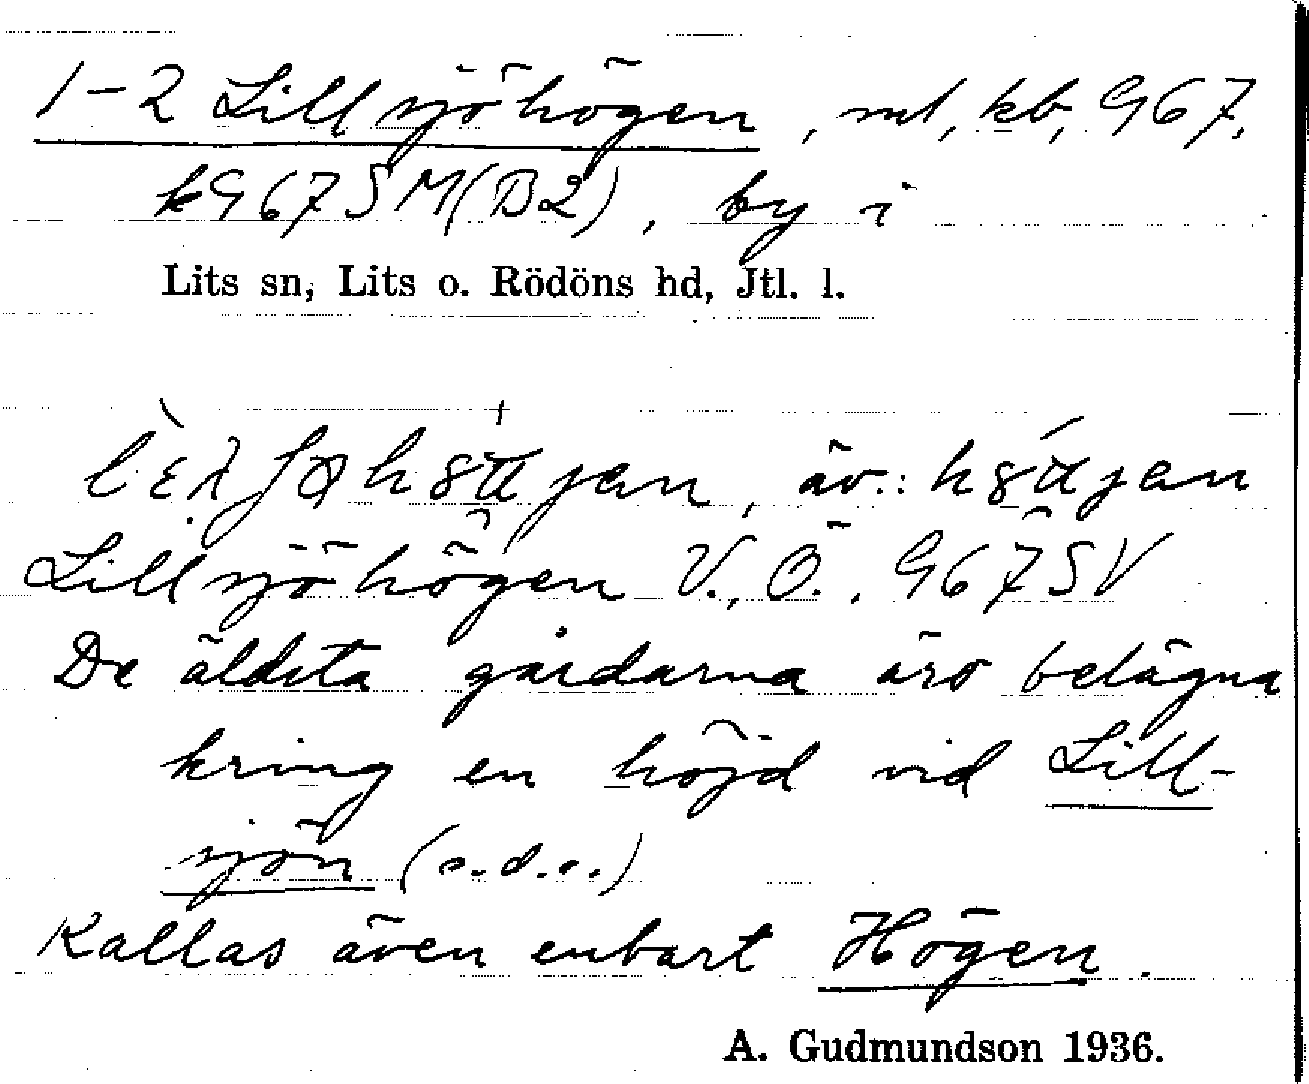 1-2 Lillsjöhögen, ml, kb, G67,
kG67SM(B2), by i
Lits sn, Lits o. Rödöns hd, Jtl. l.
äv.:
Lillsjöhögen V., Ö., G67SV
De äldsta gårdarna äro belägna
kring en höjd vid Lill-
sjön (s.d.o.)
Kallas även enbart Högen.
A. Gudmundson 1936.